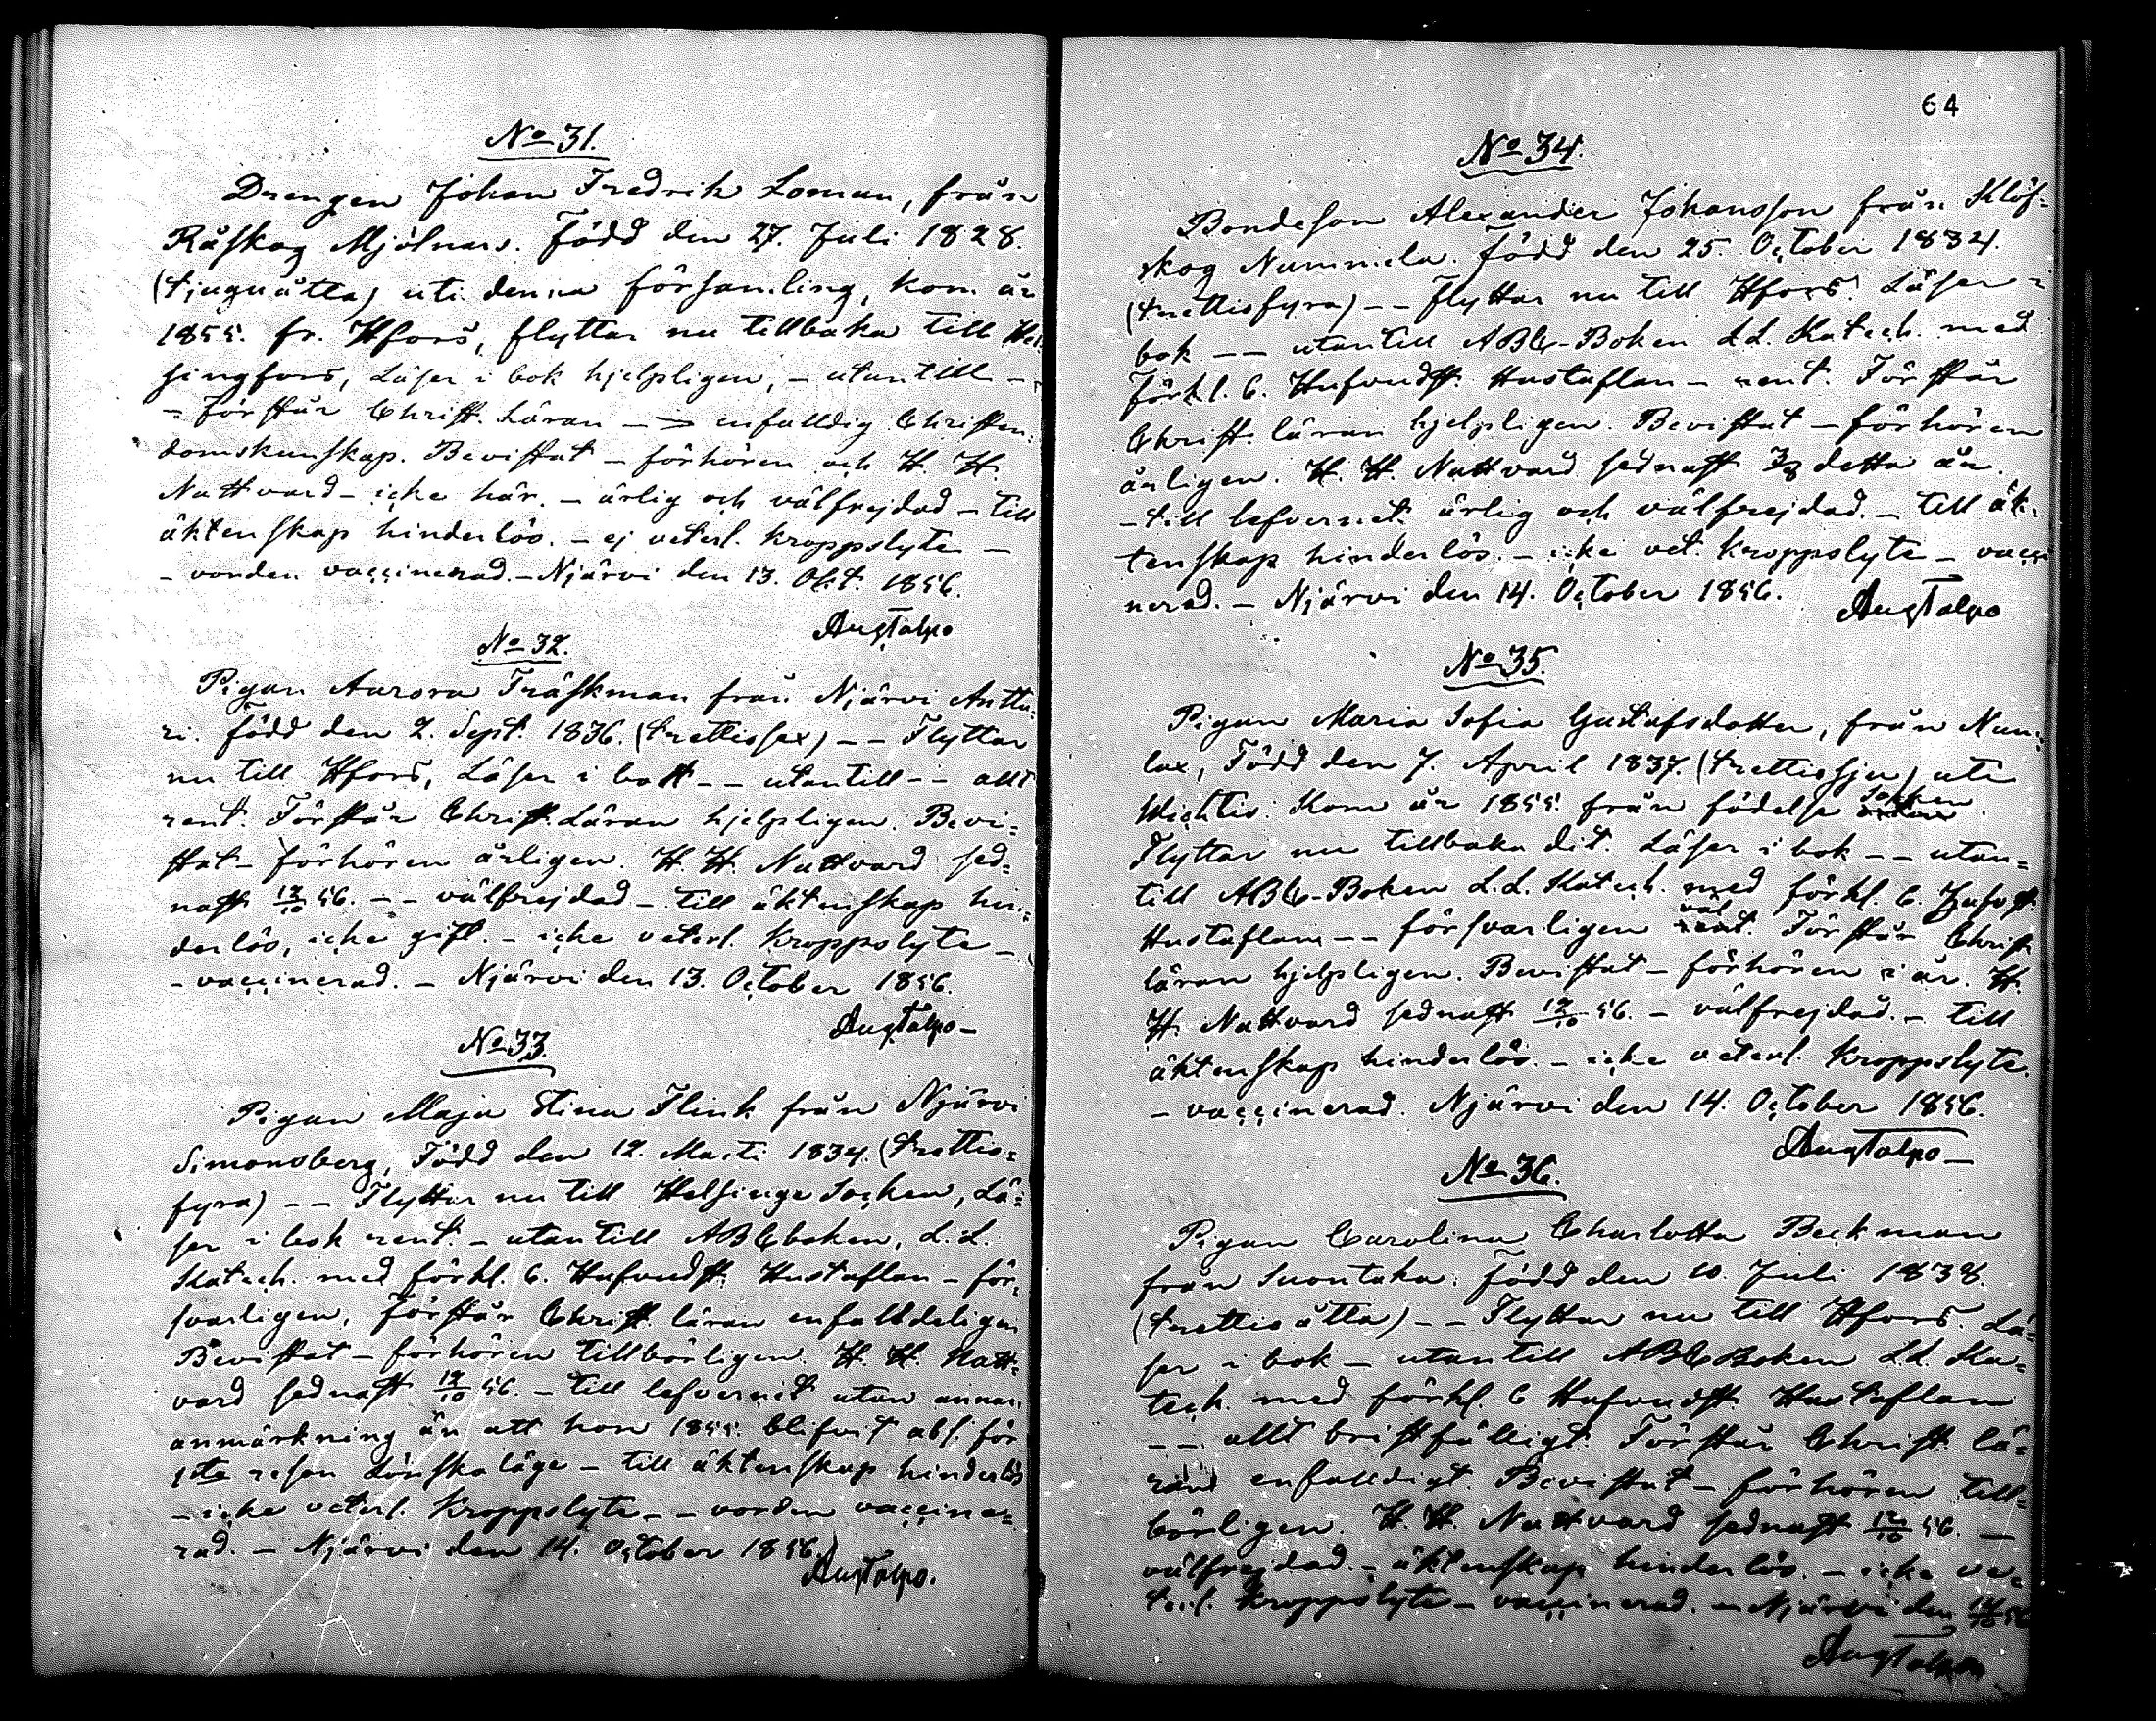 No 31.
Drengen Johan Fredrik Loman, från
Råskog Mjölnars. Född den 27. Juli 1828.
(tjuguåtta) uti denna församling, kom år
1855. fr. Hfors, flyttar nu tillbaka till Hel
singfors, Läser i bok hjelpligen, - utantill -
- Förstår Christ. Läran - enfalldig Christen
domskunskap. Bevistat - förhören och H. H.
Nattvard - icke här. - ärlig och välfrejdad - till
äktenskap hinderlös. - ej veterl. kroppslyte -
- vorden vaccinerad. - Njärvi den 13. Okt. 1856.
AugTalpo
No 32.
Pigan Aurora Träskman från Njärvi Antta-
ri. Född den 2. Sept. 1836. (trettiosex) - - Flyttar
nu till Hfors, Läser i bok - - utantill - - allt
rent. Förstår Christ. Läran hjelpligen. Bevi=
stat - förhören årligen. H. H. Nattvard sed=
nast 12/10 56. - - välfrejdad - till äktenskap hin=
derlös, icke gift. - icke veterl. kroppslyte -
- vaccinerad. - Njärvi den 13. October 1856.
AugTalpo -
No 33.
Pigan Maja Stina Flink från Njärvi
Simonsberg, Född den 12. Marti 1834. (trettio=
fyra) - - Flyttar nu till Helsinge Socken, Lä=
ser i bok rent - utantill ABCboken, L. L.
Katech. med förkl. 6. Hufvudst. Hustaflan - för
svarligen, Förstår Christ. läran enfalldeligen
Bevistat - förhören tillbörligen. H. H. Natt=
vard sednast 12/10 56. - till lefvernet utan annan
anmärkning än att hon 1855. blifvit abs. för
1sta resan Lönskaläge - till äktenskap hinderlös
- icke veterl. kroppslyte - - vorden vaccine=
rad. - Njärvi den 14. October 1856.
AugTalpo.
64
No 34.
Bondeson Alexander Johansson från Klöf-
skog Nummela. Född den 25. October 1834.
(trettiofyra) - - Flyttar nu till Hfors. Läser i
bok - - utantill ABC-Boken L L. Katech. med
Förkl. 6. Hufvudst. Hustaflan - rent. Förstår
Christ. läran hjelpligen. Bevistat - förhören
årligen. H. H. Nattvard sednast 3/8 detta år.
- till lefvernet. ärlig och välfrejdad. - till äk-
tenskap hinderlös. - icke vet. kroppslyte - vacci
nerad. - Njärvi den 14. October 1856.
AugTalpo
No 35.
Pigan Maria Sofia Gustafsdotter, från Num=
lax, Född den 7. April 1837. (trettiosju) uti
Wichtis. Kom år 1855 från födelse Socken.
Flyttar nu tillbaka dit. Läser i bok - - utan=
till ABC-Boken L. L. Katech. med förkl. 6. Hufvst.
Hustaflan - - försvarligen väl. Förstår Christ
läran hjelpligen. Bevistat - förhören i år. H.
H. Nattvard sednast 12/10 56. - välfrejdad. - till
äktenskap hinderlös. - icke veterl. kroppslyte.
- vaccinerad. Njärvi den 14. October 1856.
AugTalpo -
No 36.
Pigan Carolina Charlotta Beckman
från Suontaka. Född den 10. Juli 1838.
(trettioåtta) - - Flyttar nu till Hfors. Lä=
ser i bok - utantill ABC Boken L. L. Ka=
tech. med förkl. 6 Hufvudst. Hustaflan
- - allt bristfälligt. Förstår Christ. lä=
ran enfalldigt. Bevistat - förhören till=
börligen. H. H. Nattvard sednast 12/10 56. -
välfrejdad. - äktenskap hinderlös. - icke ve=
terl. kroppslyte - vaccinerad. - Njärvi den 14/10 56
AugTalpo